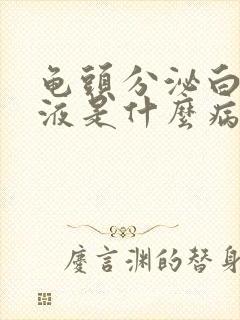 龟頭分泌白
液是什麼病
慶言渊的替身